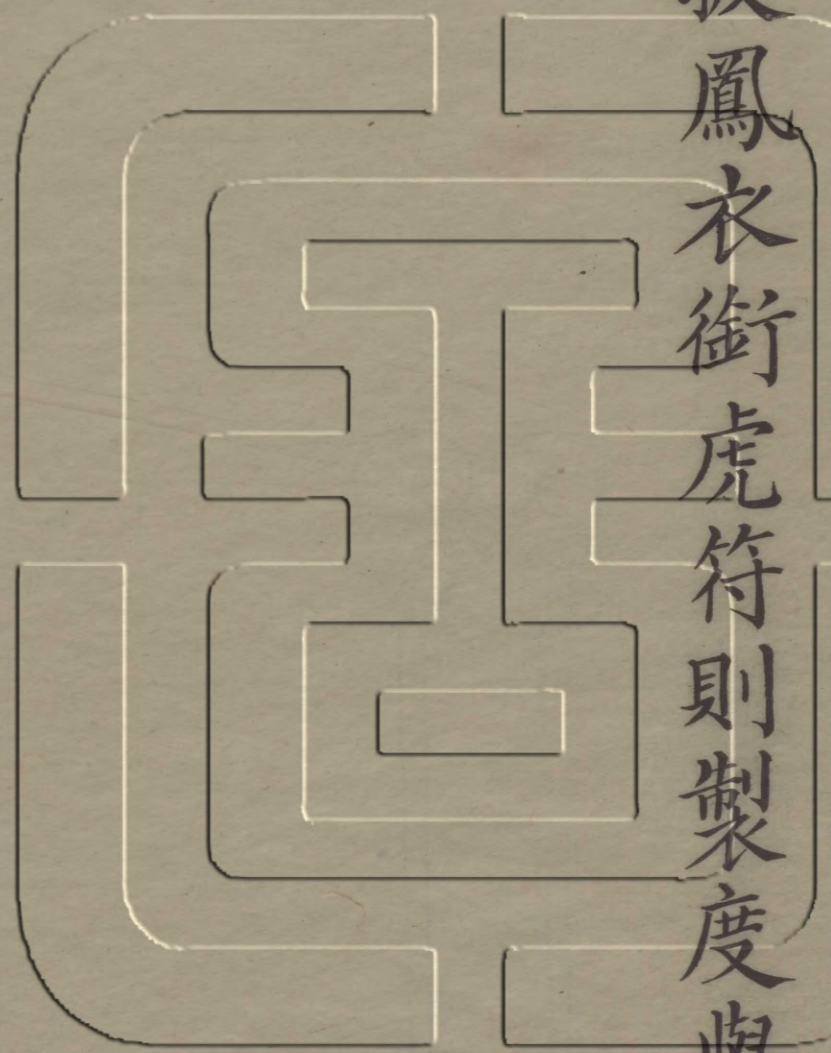 鳳衣銜虎符則製度